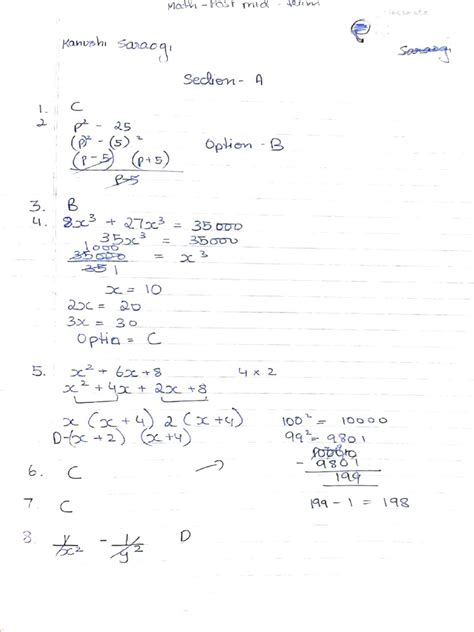 Math - Post mid - term
Kanushi Saraogi
Saraogi
Section - A
1. C
2 p² - 25
(p)² - (5)²
(p-5) (p+5) Option - B
p-5
3. B
4. 8x³ + 27x³ = 35000
35x³ = 35000
1000
35000 = x³
35 1
x = 10
2x = 20
3x = 30
Option = C
5. x² + 6x + 8 4 x 2
x² + 4x + 2x + 8
x (x + 4) 2 (x + 4)
D-(x + 2) (x + 4)
100² = 10000
99² = 9801
- 9801
199
199 - 1 = 198
6. C
7. C
8. 1/x² - 1/y² D